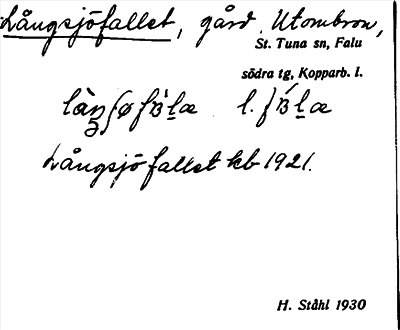 Långsjöfallet, gård, Utombron,
St. Tuna sn, Falu
södra tg, Kopparb. l.
Långsjöfallet kb 1921.
H. Ståhl 1930